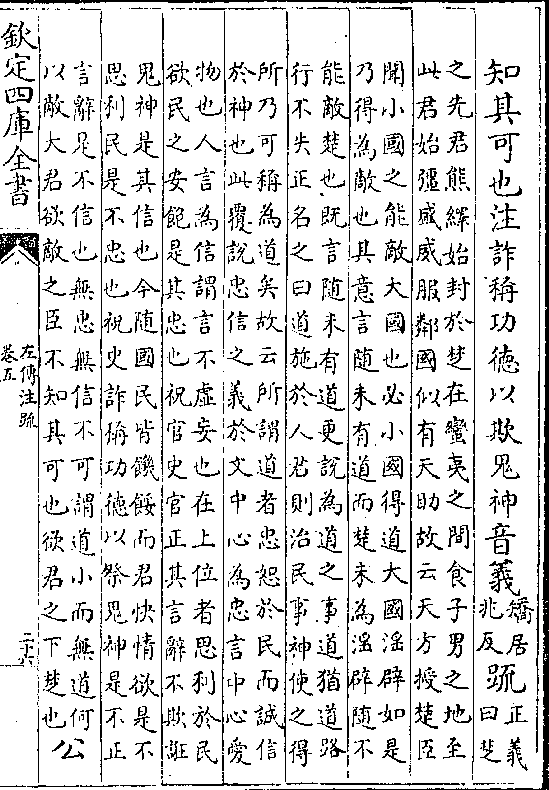 知其可也注詐稱功德以欺鬼神音義矯居兆反疏正義曰楚
之先君熊繹始封於楚在蠻夷之間食子男之地至
此君始彊盛威服鄰國似有天助故云天方授楚臣
聞小國之能敵大國也必小國得道大國淫辟如是
乃得為敵也其意言隨未有道而楚未為淫辟隨不
能敵楚也既言隨未有道更說為道之事道猶道路
行不失正名之曰道施於人君則治民事神使之得
所乃可稱為道矣故云所謂道者忠恕於民而誠信
於神也此覆說忠信之義於文中心為忠言中心愛
物也人言為信謂言不虛妄也在上位者思利於民
欲民之安飽是其忠也祝官史官正其言辭不欺誑
鬼神是其信也今隨國民皆饑餒而君快情欲是不
思利民是不忠也祝史詐稱功德以祭鬼神是不正
言辭是不信也無忠無信不可謂道小而無道何
以敵大君欲敵之臣不知其可也欲君之下楚也 公
欽定四庫全書
左傳注疏
卷五
二十六